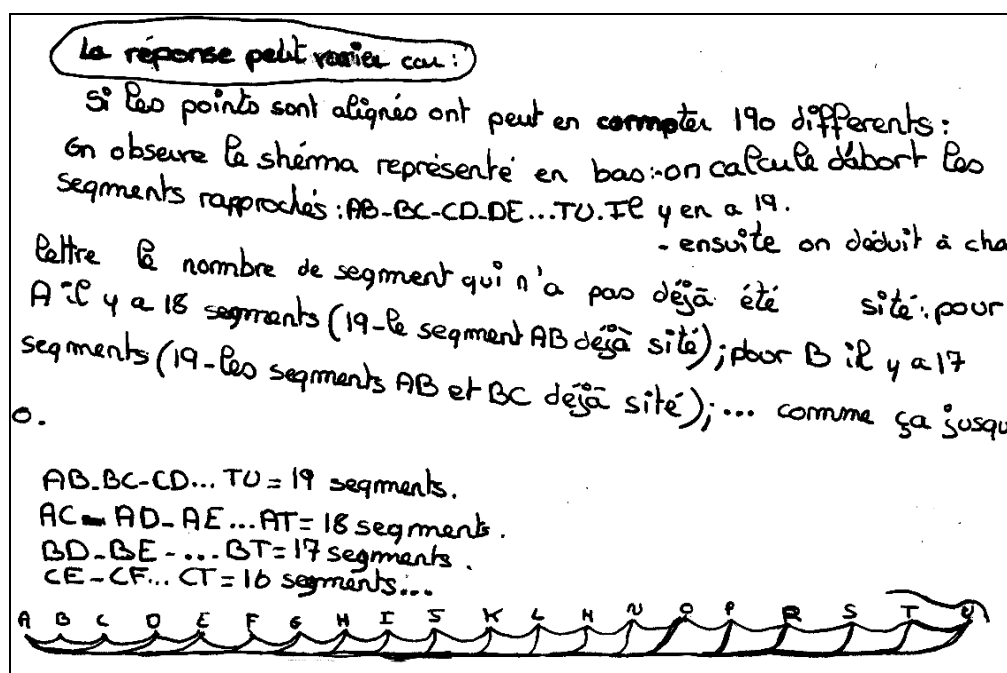 La réponse peut varier car :
Si les points sont alignés ont peut en compter 190 differents :
On observe le shémma représenté en bas :-on calcule d'abort les
segments rapprochés : AB-BC-CD-DE...TU. Il y en a 19.
- ensuite on déduit à cha
lettre le nombre de segment qui n'a pas déjà été sité : pour
A il y a 18 segments (19-le segment AB déjà sité) ; pour B il y a 17
segments (19-les segments AB et BC déjà sité) ; ... comme ça jusqu
0.
AB-BC-CD... TU = 19 segments.
AC - AD - AE ... AT = 18 segments.
BD - BE - .... BT = 17 segments.
CE - CF... CT = 16 segments...
A B C D E F G H I J K L M N O P R S T U